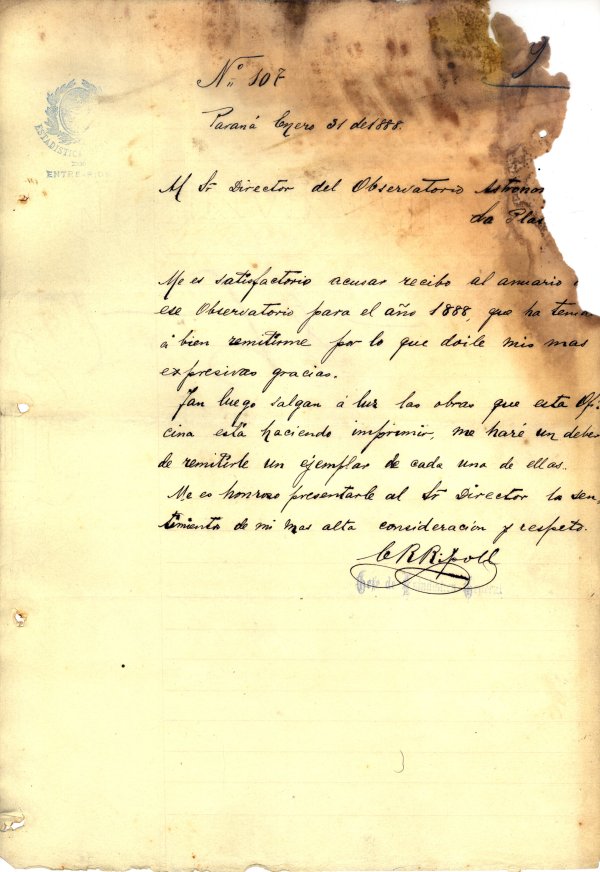 Nº 107
Paraná Enero 31 de 1888.
ESTADISTICA
ENTRE-RIOS
Al Sr Director del Observatorio Astrono
La Pla
Me es satisfactorio acusar recibo al anuario
ese Observatorio para el año 1888, que ha teni
á bien remitirme por lo que doile mis mas
expresivas gracias.
Tan luego salgan á luz las obras que esta Ofi-
cina está haciendo imprimir, me haré un deber
de remitirle un ejemplar de cada una de ellas.
Me es honroso presentarle al Sr Director la sen-
timiento de mi mas alta consideracion y respeto.
C R Ripoll
Gefe de General